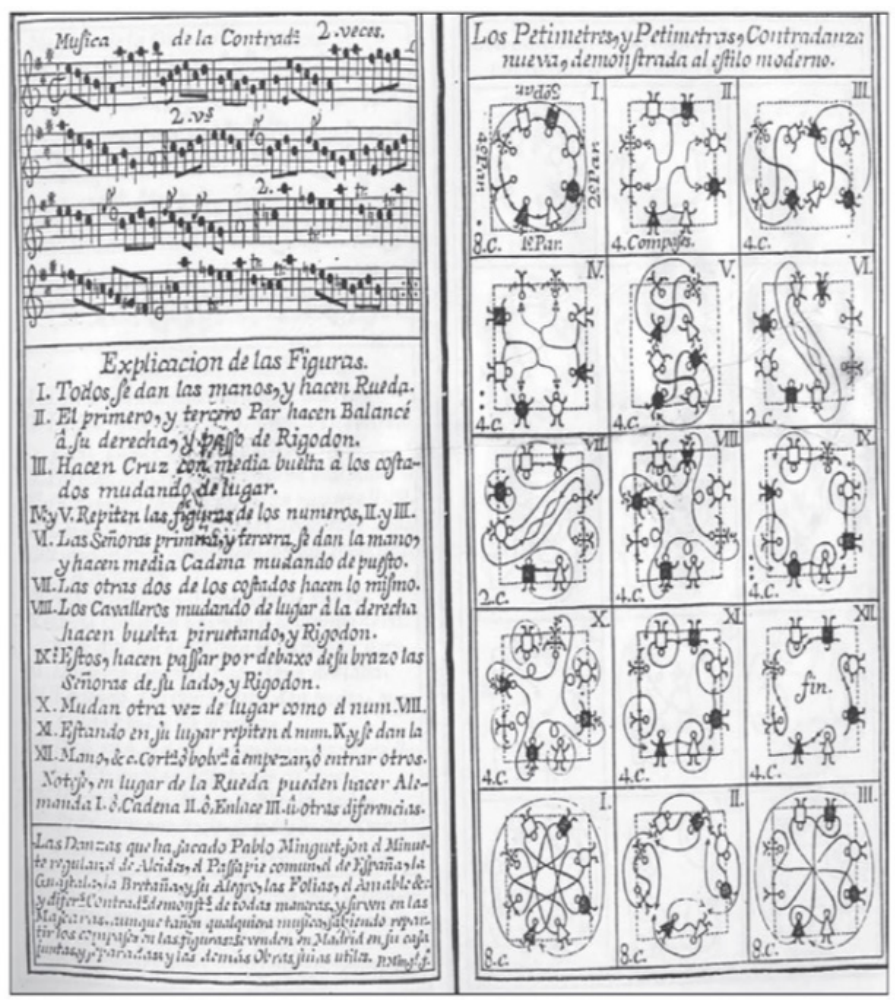 Musica de la Contradª. 2. veces.
2. vˢ
2.
Explicacion de las Figuras.
I. Todos ſe dan las manos, y hacen Rueda.
II. El primero, y tercero Par hacen Balancé
â ſu derecha, y paſſo de Rigodon.
III. Hacen Cruz con media buelta â los coſta-
dos mudando de lugar.
IV. y V. Repiten las figuras de los numeros, II. y III.
VI. Las Señoras primera, y tercera, ſe dan la mano,
y hacen media Cadena mudando de pueſto.
VII. Las otras dos de los coſtados hacen lo miſmo.
VIII. Los Cavalleros mudando de lugar â la derecha
hacen buelta piruetando, y Rigodon.
IX. Eſtos, hacen paſſar por debaxo de ſu brazo las
Señoras de ſu lado, y Rigodon.
X. Mudan otra vez de lugar como el num. VIII.
XI. Eſtando en ſu lugar repiten el num. IX. y ſe dan la
XII. Mano, &c. Cortª. ô bolvª. â empezar, ô entrar otros.
Noteſe, en lugar de la Rueda pueden hacer Ale-
manda I. ô. Cadena II. ô. Enlace III. û otras diferencias.
Las Danzas que ha ſacado Pablo Minguet ſon el Minue-
te regular, el de Alcides, el Paſſapie comun, el de España, la
Guaſtala, la Bretaña, y ſu Alegro, las Folias, el Amable &c.
y diferˢ. Contradˢ. demonſtˢ. de todas maneras, y ſirven en las
Maſcaras, aunque tañen qualquiera muſica, ſabiendo repar-
tir los compaſes en las figuras: ſe venden en Madrid en ſu caſa
juntas, y ſeparadas, y las demás Obras ſuias utiles. P. Mingᵗ. f.
Los Petimetres, y Petimetras, Contradanza
nueva, demonſtrada al eſtilo moderno.
I. II. III.
3º Par
4º Par
2º Par
8.c. 1º Par. 4. Compaſes. 4.c.
IV. V. VI.
4.c. 4.c. 2.c.
VII. VIII. IX.
2.c. 4.c. 4.c.
X. XI. XII.
fin.
4.c. 4.c. 4.c.
I. II. III.
8.c. 8.c. 8.c.